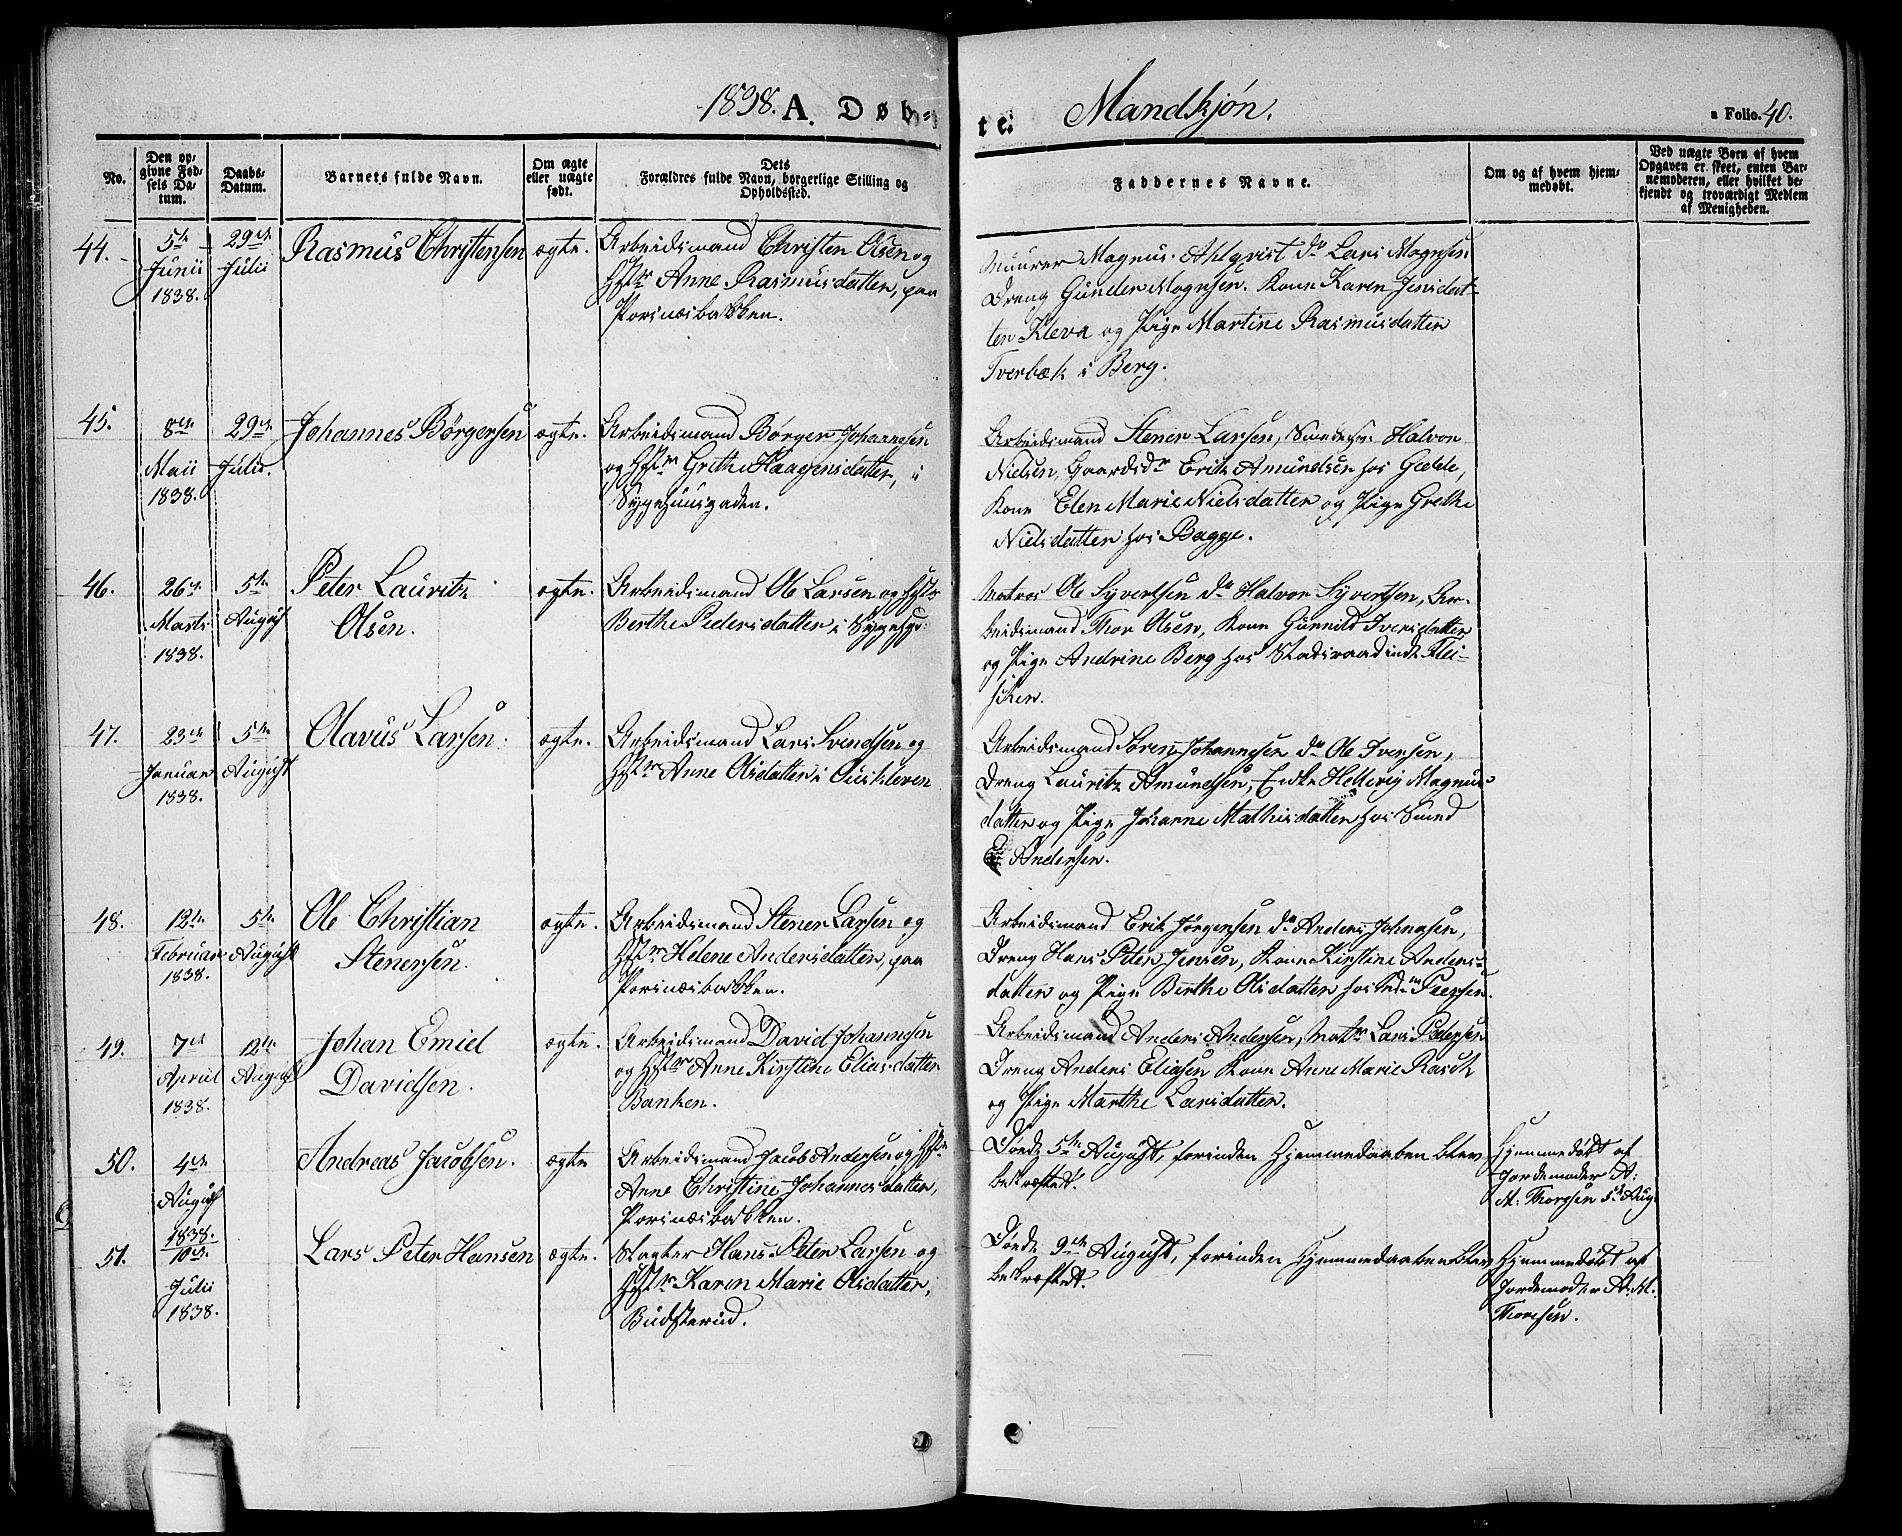 1838. A. Døb-
te. Mandkjön. a Folio. 40.
No.
Den op-
givne Fød-
sels Da-
tum.
Daabs-
Datum.
Barnets fulde Navn.
Om ægte
eller uægte
født.
Dets
Forældres fulde Navn, borgerlige Stilling og
Opholdssted.
Faddernes Navne.
Om og af hvem hjem-
medøbt.
Ved uægte Børn af hvem
Opgaven er skeet, enten Bar-
nemoderen, eller hvilket be-
kjendt og troværdigt Medlem
af Menigheden.
44.
5te
Junii
1838.
29de
Julii
Rasmus Christensen
ægte.
Arbeidsmand Christen Olsen og
Hstr Anne Rasmusdatter, paa
Porsnæsbakken.
Muurer Magnus Ahlqvist do Lars Mognsen
Dreng Günder Mognsen. Kone Karen Jensdat-
ter Kleva og Pige Martine Rasmusdatter
Tverbæk i Berg.
45.
8de
Maii
1838.
29de
Julii.
Johannes Börgersen
ægte.
Arbeidsmand Börger Johannesen
og Hstr Grethe Haagensdatter, i
Sygehuusgaden.
Arbeidsmand Stener Larsen, Halvor
Nielsen, Gaardsdr Erik Amundsen hos Gedde,
Kone Elen Marie Nielsdatter og Pige Grethe
Nielsdatter hos Bagge.
46.
26de
Marts
1838.
5te
August
Peter Lauritz
Olsen.
ægte.
Arbeidsmand Ole Larsen og Hstr
Berthe Pedersdatter i Sygehg:
Matros Ole Syvertsen do Halvor Syvertsen, Ar-
beidsmand Thor Olsen, Kone Gunnild Iversdatter
og Pige Andrine Berg hos Stadsraadinde Flei-
scher.
47.
23de
Januar
1838.
5te
August
Olavus Larsen.
ægte.
Arbeidsmand Lars Svendsen og
Hstr Anne Olsdatter i
Arbeidsmand Søren Johannesen do Ole Iversen,
Dreng Lauritz Amundsen, Enke Hellevig Magnus-
datter og Pige Johanne Mathisdatter hos Smed
Andersen.
48.
12te
Februar
1838.
5te
August
Ole Christian
Stenersen.
ægte.
Arbeidsmand Stener Larsen og
Hstr Helene Andersdatter, paa
Porsnæsbakken.
Arbeidsmand Erik Jörgensen do Anders Johnesen,
Dreng Hans Peter Jensen, Kone Kirstine Anders-
datter og Pige Berthe Olsdatter hos
49.
7de
April
1838.
12te
August
Johan Emiel
Davidsen.
ægte.
Arbeidsmand David Johannesen
og Hstr Anne Kirstine Eliasdatter
Banken.
Arbeidsmand Anders Andersen, Matrs Lars Pedersen
Dreng Anders Eliasen Kone Anne Marie Rasch
og Pige Marthe Larsdatter.
50.
4de
August
1838.
Andreas Jacobsen.
ægte
Arbeidsmand Jacob Andersen og Hstr
Anne Christine Johannesdatter,
Porsnæsbakken.
Døde 5te August, forinden Hjemmedaaben blev
bekræftet.
Hjemmedöbt af
Jordemoder A:
M: Thoresen 5te Aug.
51.
10de
Julii
1838.
Lars Peter Hansen
ægte.
Slagter Hans Peter Larsen og
Hstr Karen Marie Olsdatter,
Büdsterud.
Døde 9de August, forinden Hjemmedaaben blev
bekræftet.
Hjemmedöbt af
Jordemoder A. M.
Thoresen.